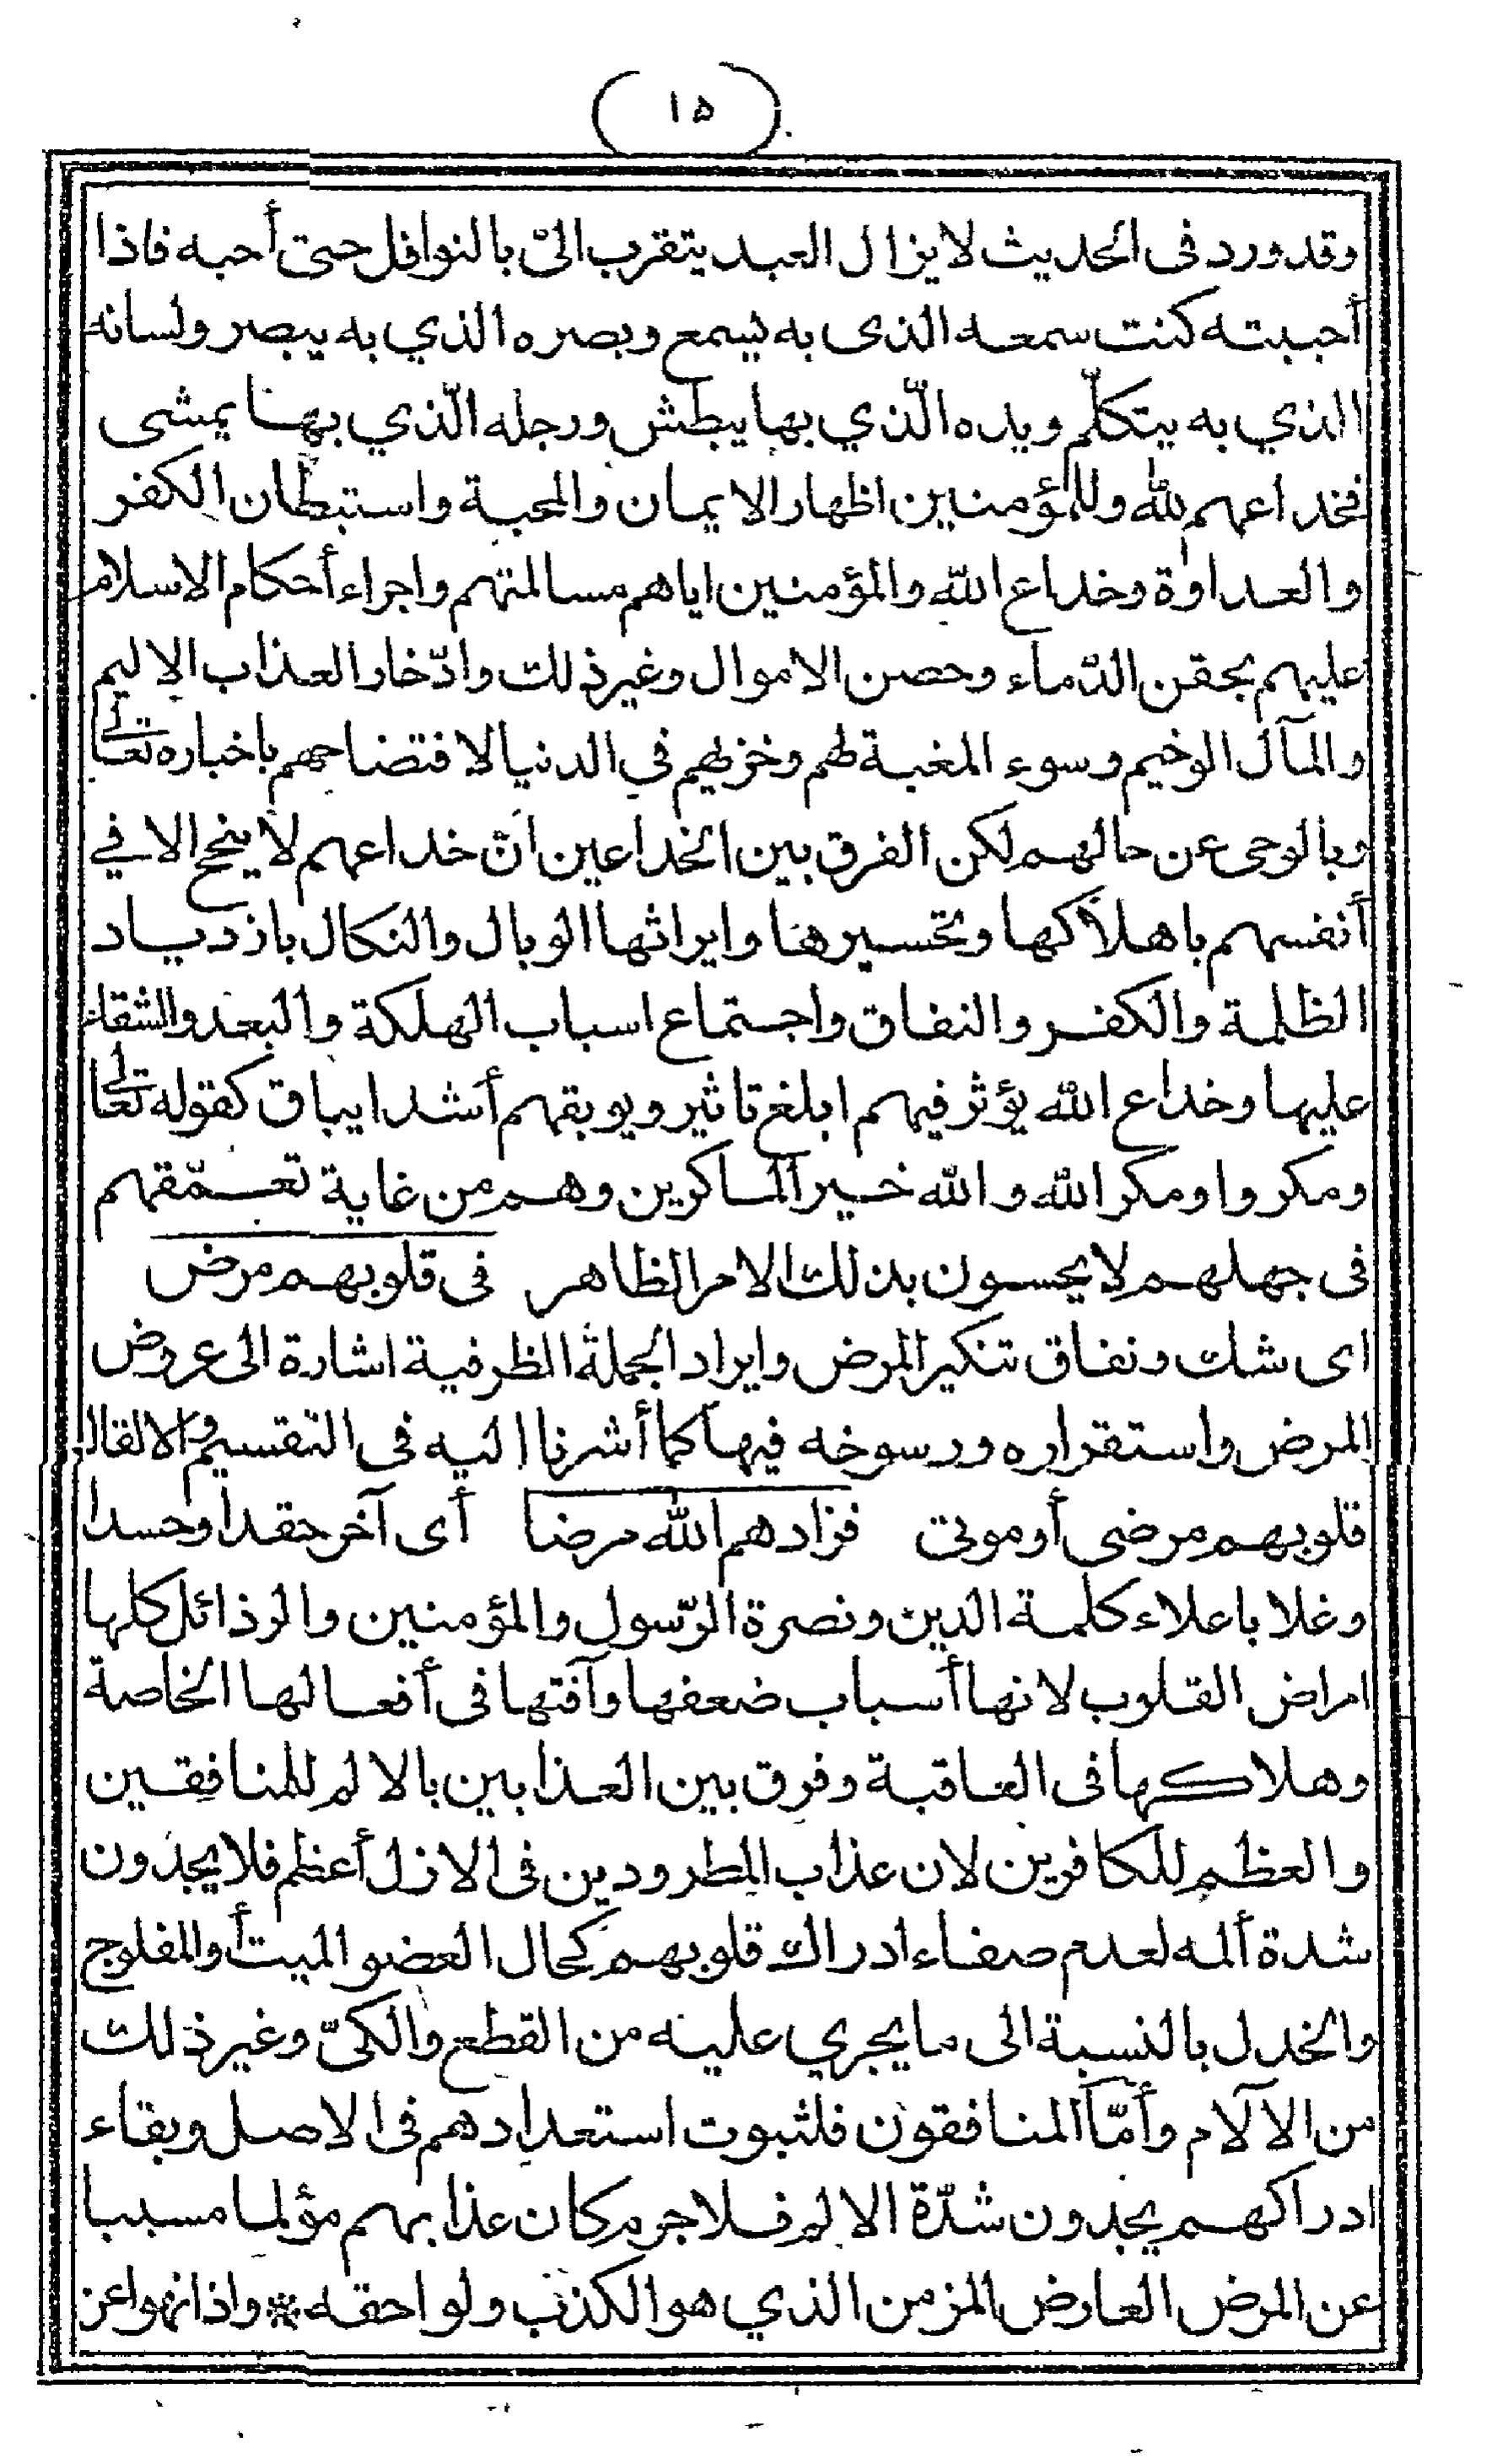 (١٥)
وقد ورد فى الحديث لا يزال العبد يتقرب الىّ بالنوافل حتى أحبه فاذا
أحببته كنت سمعه الذى به يسمع وبصره الذي به يبصر ولسانه
الذي به يتكلّم ويده الّذي بها يبطش ورجله الّذي بها يمشى
فخداعهم لله وللمؤمنين اظهار الايمان والمحبة واستبطان الكفر
والعداوة وخداع الله والمؤمنين اياهم مسالمتهم واجراء أحكام الاسلام
عليهم بحقن الدّماء وحصن الاموال وغير ذلك وادّخار العذاب الاليم
والمآل الوخيم وسوء المغبة لهم وخزيهم في الدنيا لافتضاحهم باخباره تعالى
وبالوحى عن حالهم لكن الفرق بين الخداعين انّ خداعهم لا ينجح الا في
أنفسهم باهلاكها وتحسيرها وايراثها الوبال والنكال بازدياد
الظلمة والكفر والنفاق واجتماع اسباب الهلكة والبعد والشقاء
عليها وخداع الله يؤثر فيهم ابلغ تاثير ويوبقهم أشد ايباق كقوله تعالى
ومكروا ومكر الله والله خير الماكرين وهم من غاية تعمّقهم
فى جهلهم لا يحسون بذلك الامر الظاهر فى قلوبهم مرض
اى شك ونفاق تنكير المرض وايراد الجملة الظرفية اشارة الى عروض
المرض واستقراره ورسوخه فيها كما أشرنا اليه فى التقسيم والا لقال
قلوبهم مرضى أو موتى فزادهم الله مرضا أى آخر حقدا وحسدا
وغلا باعلاء كلمة الدين ونصرة الرّسول والمؤمنين والرذائل كلها
امراض القلوب لانها أسباب ضعفها وآفتها فى أفعالها الخاصة
وهلاكها فى العاقبة وفرق بين العذابين بالالم للمنافقين
والعظم للكافرين لان عذاب المطرودين فى الازل أعظم فلا يجدون
شدة ألمه لعدم صفاء ادراك قلوبهم كحال العضو الميت أو المفلوج
والخدل بالنسبة الى ما يجري عليه من القطع والكىّ وغير ذلك
من الآلام وأمّا المنافقون فلثبوت استعدادهم فى الاصل وبقاء
ادراكهم يجدون شدّة الالم فلا جرم كان عذابهم مؤلما مسببا
عن المرض العارض المزمن الذي هو الكذب ولواحقه * واذا نهوا عن